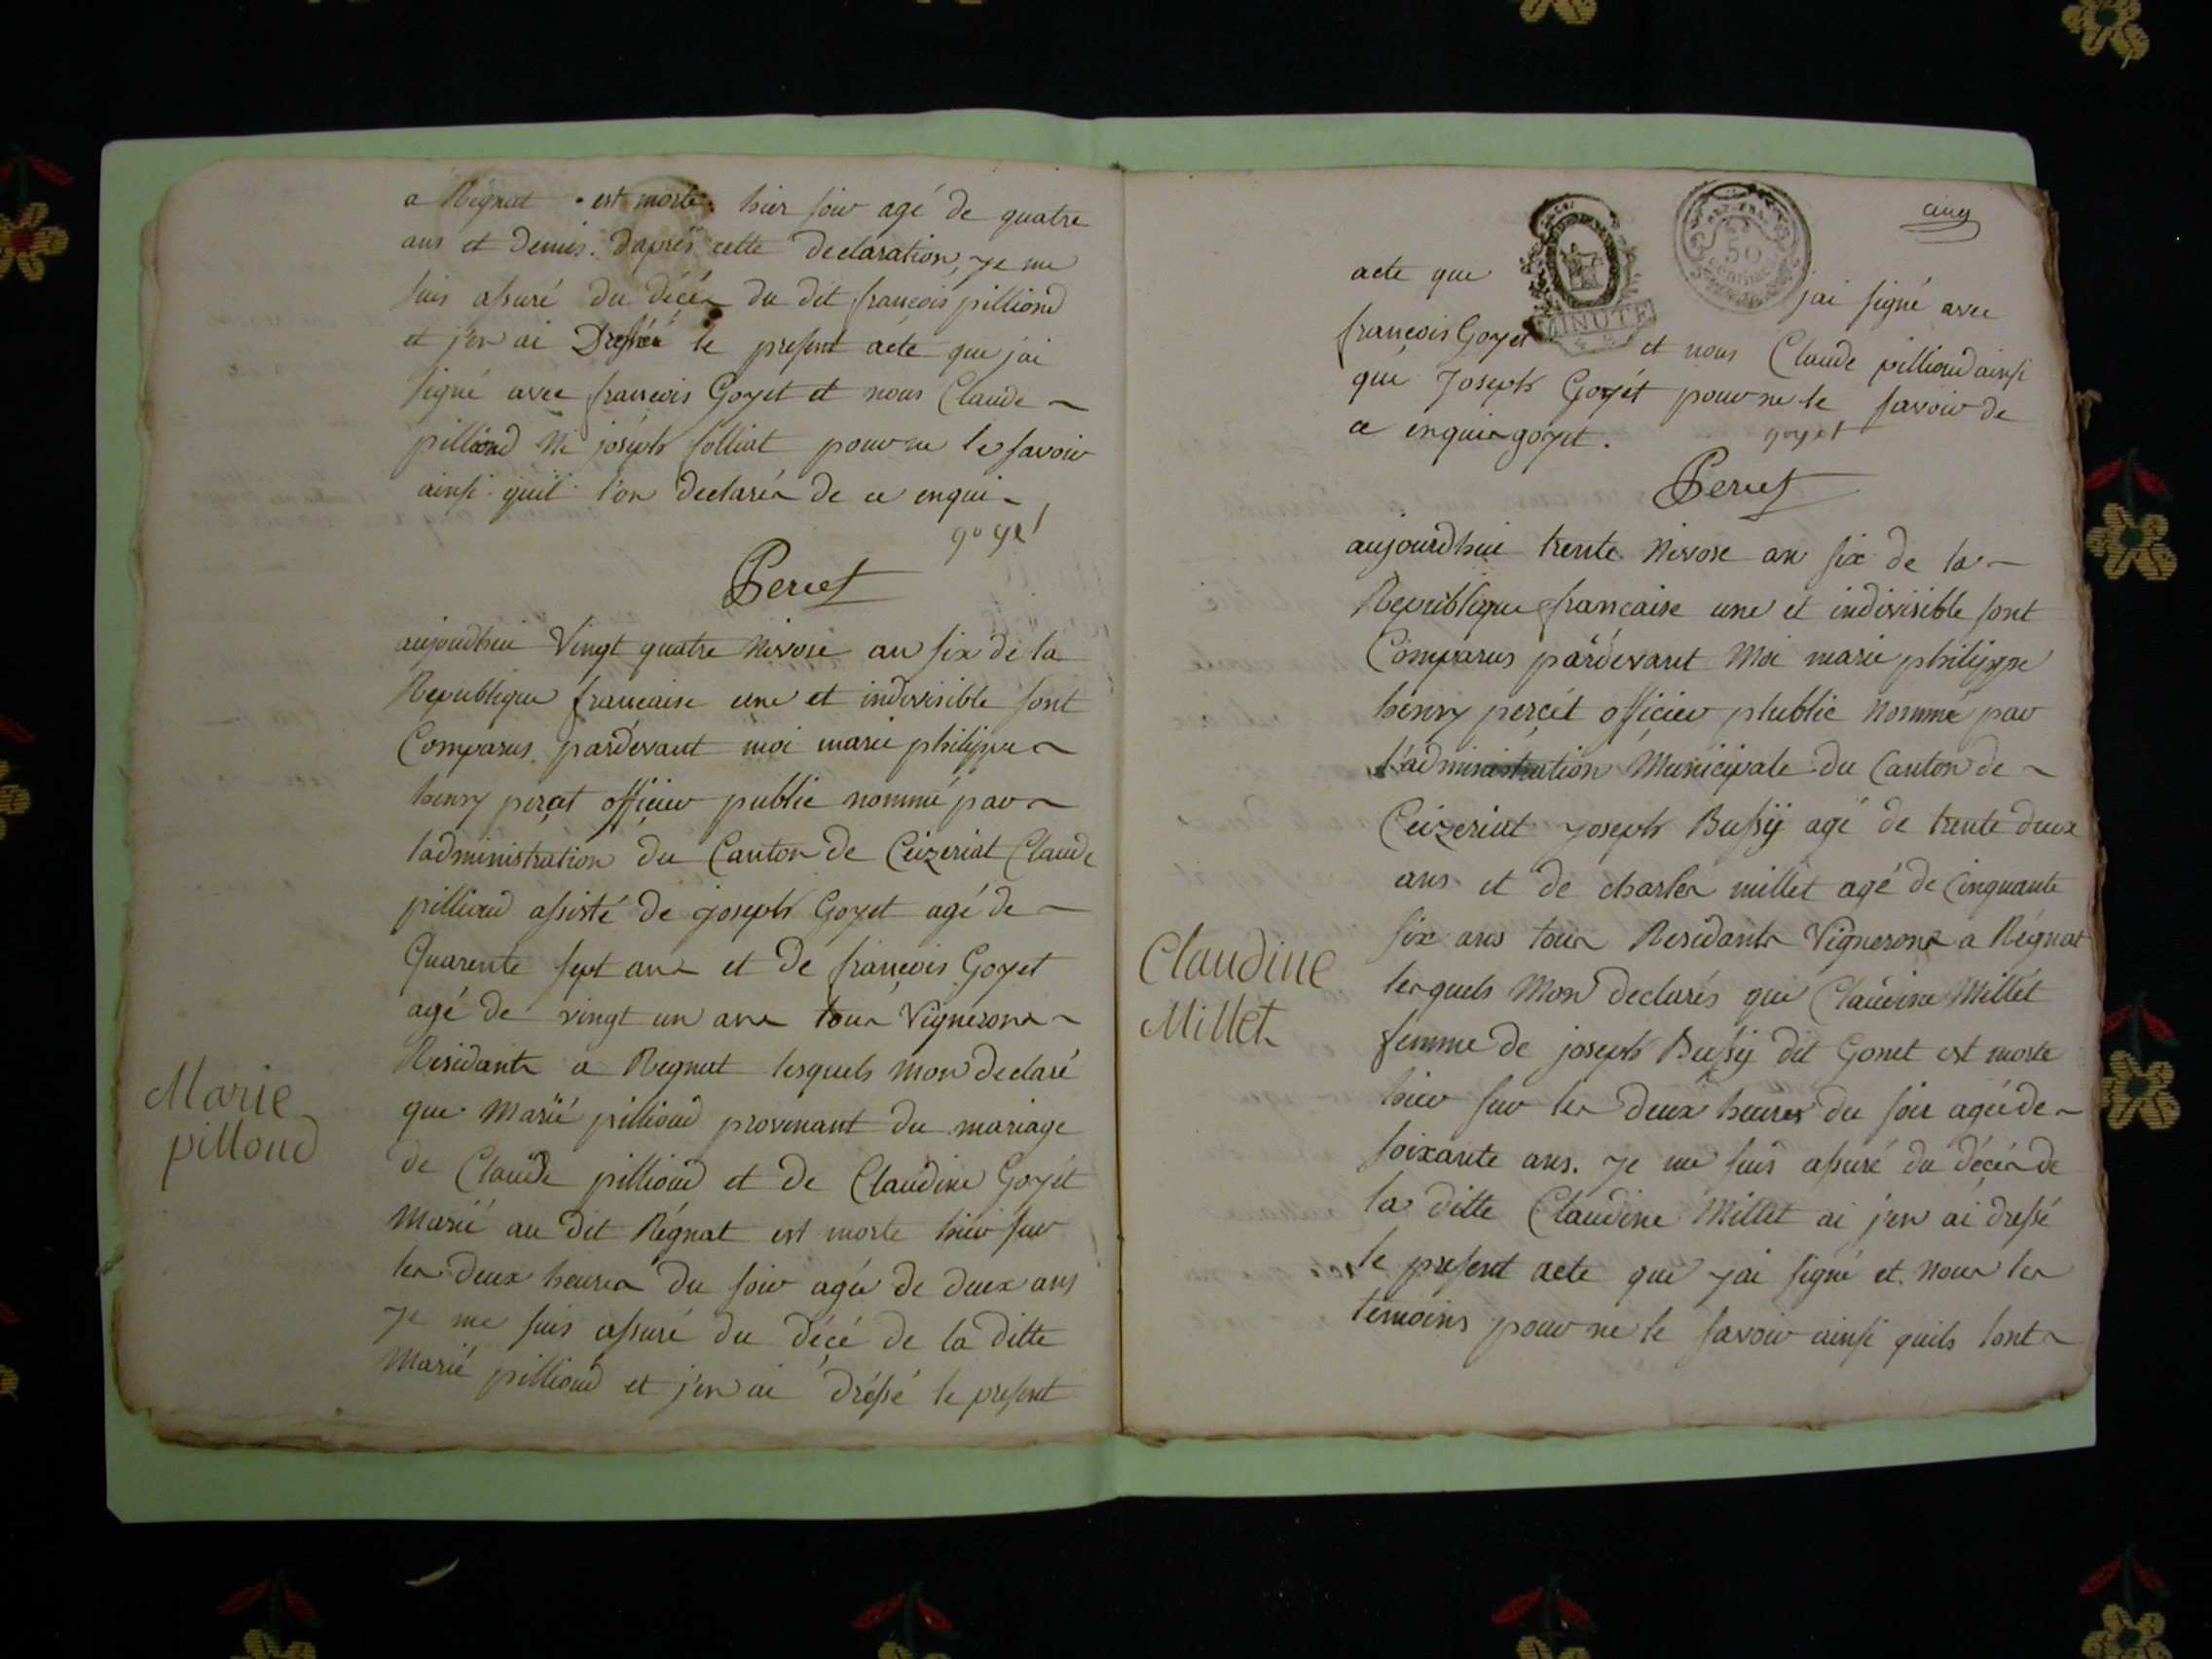 a Regnat est morte hier soir agé de quatre
ans et demis. d'aprés cette declaration, je me
suis assuré du décés du dit françois pilliond
et j'en ai Dressé le present acte que j'ai
signé avec françois Goyet et nous Claude
pilliond Ni joséph folliat pour ne le savoir
ainsi quil l'on declarés de ce enquis
goyet
Percet
aujourdhui Vingt quatre Nivose an six de la
Republique francaise une et indivisible sont
Comparus pardevant moi marie philippe
henry perçet officier public nommé par
l'administration du Canton de Ceizeriat Claude
pillioud assisté de joseph Goyet agé de
Quarente sept ans et de françois Goyet
agé de vingt un ans tous Vignerons
Residants a Regnat lesquels mon declaré
que Marie pillioud provenant du mariage
de Claude pillioud et de Claudine Goyét
Marié au dit Régnat est morte hier sur
les deux heures du soir agée de deux ans
Je me suis assuré du décé de la ditte
Marié pillioud et j'en ai dréssé le present
Marie
pilloud
cinq
50
centimes
MINUTE
acte que j'ai signé avec
françois Goyet et nous Claude pillioud ainsi
que Joseph Goyét pour ne le savoir de
ce enquis goyet.
goyet
Percet
aujourdhui trente Nivose an six de la
Republique francaise une et indivisible sont
Comparus pardevant Moi marie philippe
henry perçét officier plublic Nommé par
l'administration Municipale du Canton de
Ceizeriat Joseph Bussÿ agé de trente deux
ans et de charles millet agé de Cinquante
six ans tous Residants Vignerons a Régnat
lesquels Mon declarés que Claudine Millét
femme de joseph Bussÿ dit Gonet est morte
hier sur les deux heures du soir agée de
soixante ans. Je me suis assuré du décés de
la ditte Claudine Millet ai j'en ai dressé
le present acte que j'ai signé et nous les
temoins pour ne le savoir ainsi quils lont
Claudine
Millet